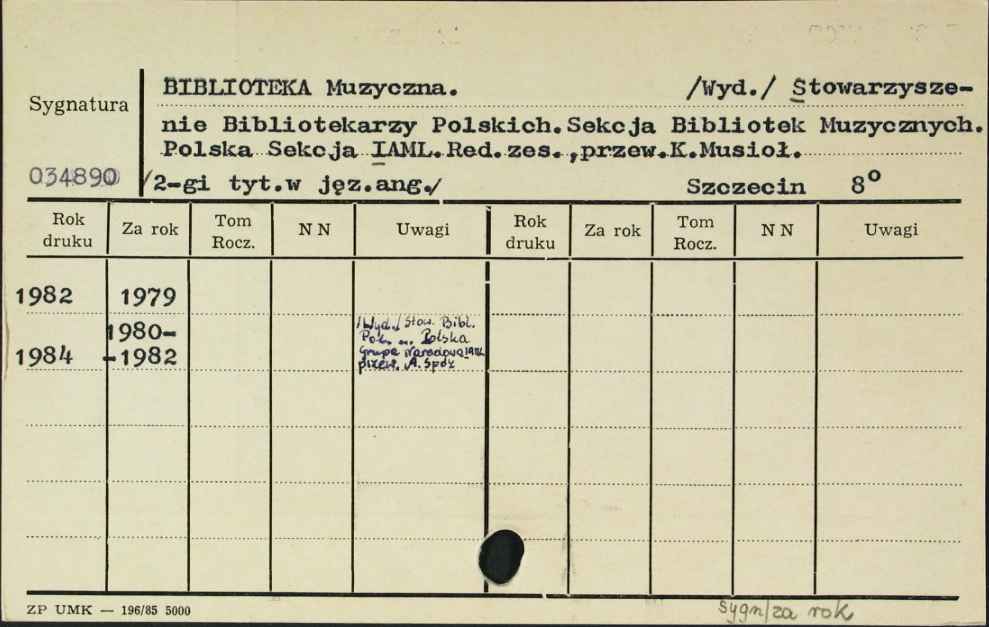 BIBLIOTEKA Muzyczna. /Wyd./ Stowarzysze-
Sygnatura
nie Bibliotekarzy Polskich.Sekcja Bibliotek Muzycznych.
Polska Sekcja IAML.Red.zes.,przew.K.Musioł.
034890 /2-gi tyt.w jęz.ang./ Szczecin 8°
Rok druku Za rok Tom Rocz. NN Uwagi Rok druku Za rok Tom Rocz. NN Uwagi
1982 1979
1980-
1984 -1982
/Wyd./ Stow. Bibl.
Pol. ... Polska
Grupa Narodowa IAML
przew. A. Spóz
ZP UMK — 196/85 5000
sygn/za rok